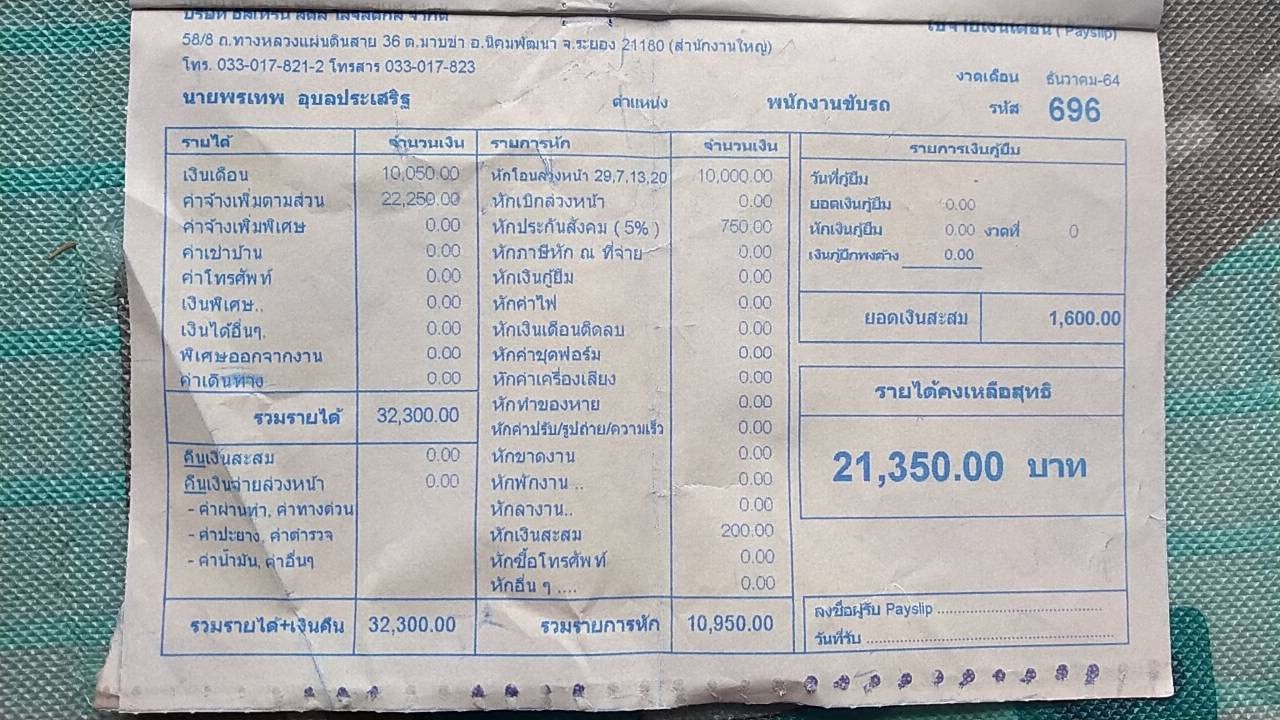 บริษัท อีสเทิร์น
ใบจ่ายเงินเดือน ( Payslip)
58/8 ถ.ทางหลวงแผ่นดินสาย 36 ต.มาบข่า อ.นิคมพัฒนา จ.ระยอง 21180 (สำนักงานใหญ่)
โทร. 033-017-821-2 โทรสาร 033-017-823
งวดเดือน ธันวาคม-64
นายพรเทพ อุบลประเสริฐ ตำแหน่ง พนักงานขับรถ รหัส 696
รายได้ จำนวนเงิน รายการหัก จำนวนเงิน รายการเงินกู้ยืม
เงินเดือน 10,050.00 หักโอนล่วงหน้า 29,7,13,20 10,000.00 วันที่กู้ยืม
ค่าจ้างเพิ่มตามส่วน 22,250.00 หักเบิกล่วงหน้า 0.00 ยอดเงินกู้ยืม 0.00
ค่าจ้างเพิ่มพิเศษ 0.00 หักประกันสังคม ( 5% ) 750.00 หักเงินกู้ยืม 0.00 งวดที่ 0
ค่าเช่าบ้าน 0.00 หักภาษีหัก ณ ที่จ่าย 0.00 เงินกู้ยืมคงค้าง 0.00
ค่าโทรศัพท์ 0.00 หักเงินกู้ยืม 0.00
เงินพิเศษ.. 0.00 หักค่าไฟ 0.00
เงินได้อื่นๆ. 0.00 หักเงินเดือนติดลบ 0.00 ยอดเงินสะสม 1,600.00
พิเศษออกจากงาน 0.00 หักค่าชุดฟอร์ม 0.00
ค่าเดินทาง 0.00 หักค่าเครื่องเสียง 0.00 รายได้คงเหลือสุทธิ
รวมรายได้ 32,300.00 หักทำของหาย 0.00
หักค่าปรับ/รูปถ่าย/ความเร็ว 0.00
คืนเงินสะสม 0.00 หักขาดงาน 0.00 21,350.00 บาท
คืนเงินจ่ายล่วงหน้า 0.00 หักพักงาน .. 0.00
- ค่าผ่านท่า, ค่าทางด่วน หักลางาน.. 0.00
- ค่าปะยาง, ค่าตำรวจ หักเงินสะสม 200.00
- ค่าน้ำมัน, ค่าอื่นๆ หักซื้อโทรศัพท์ 0.00
หักอื่น ๆ .... 0.00
รวมรายได้+เงินคืน 32,300.00 รวมรายการหัก 10,950.00
ลงชื่อผู้รับ Payslip ..........................................
วันที่รับ ..............................................................